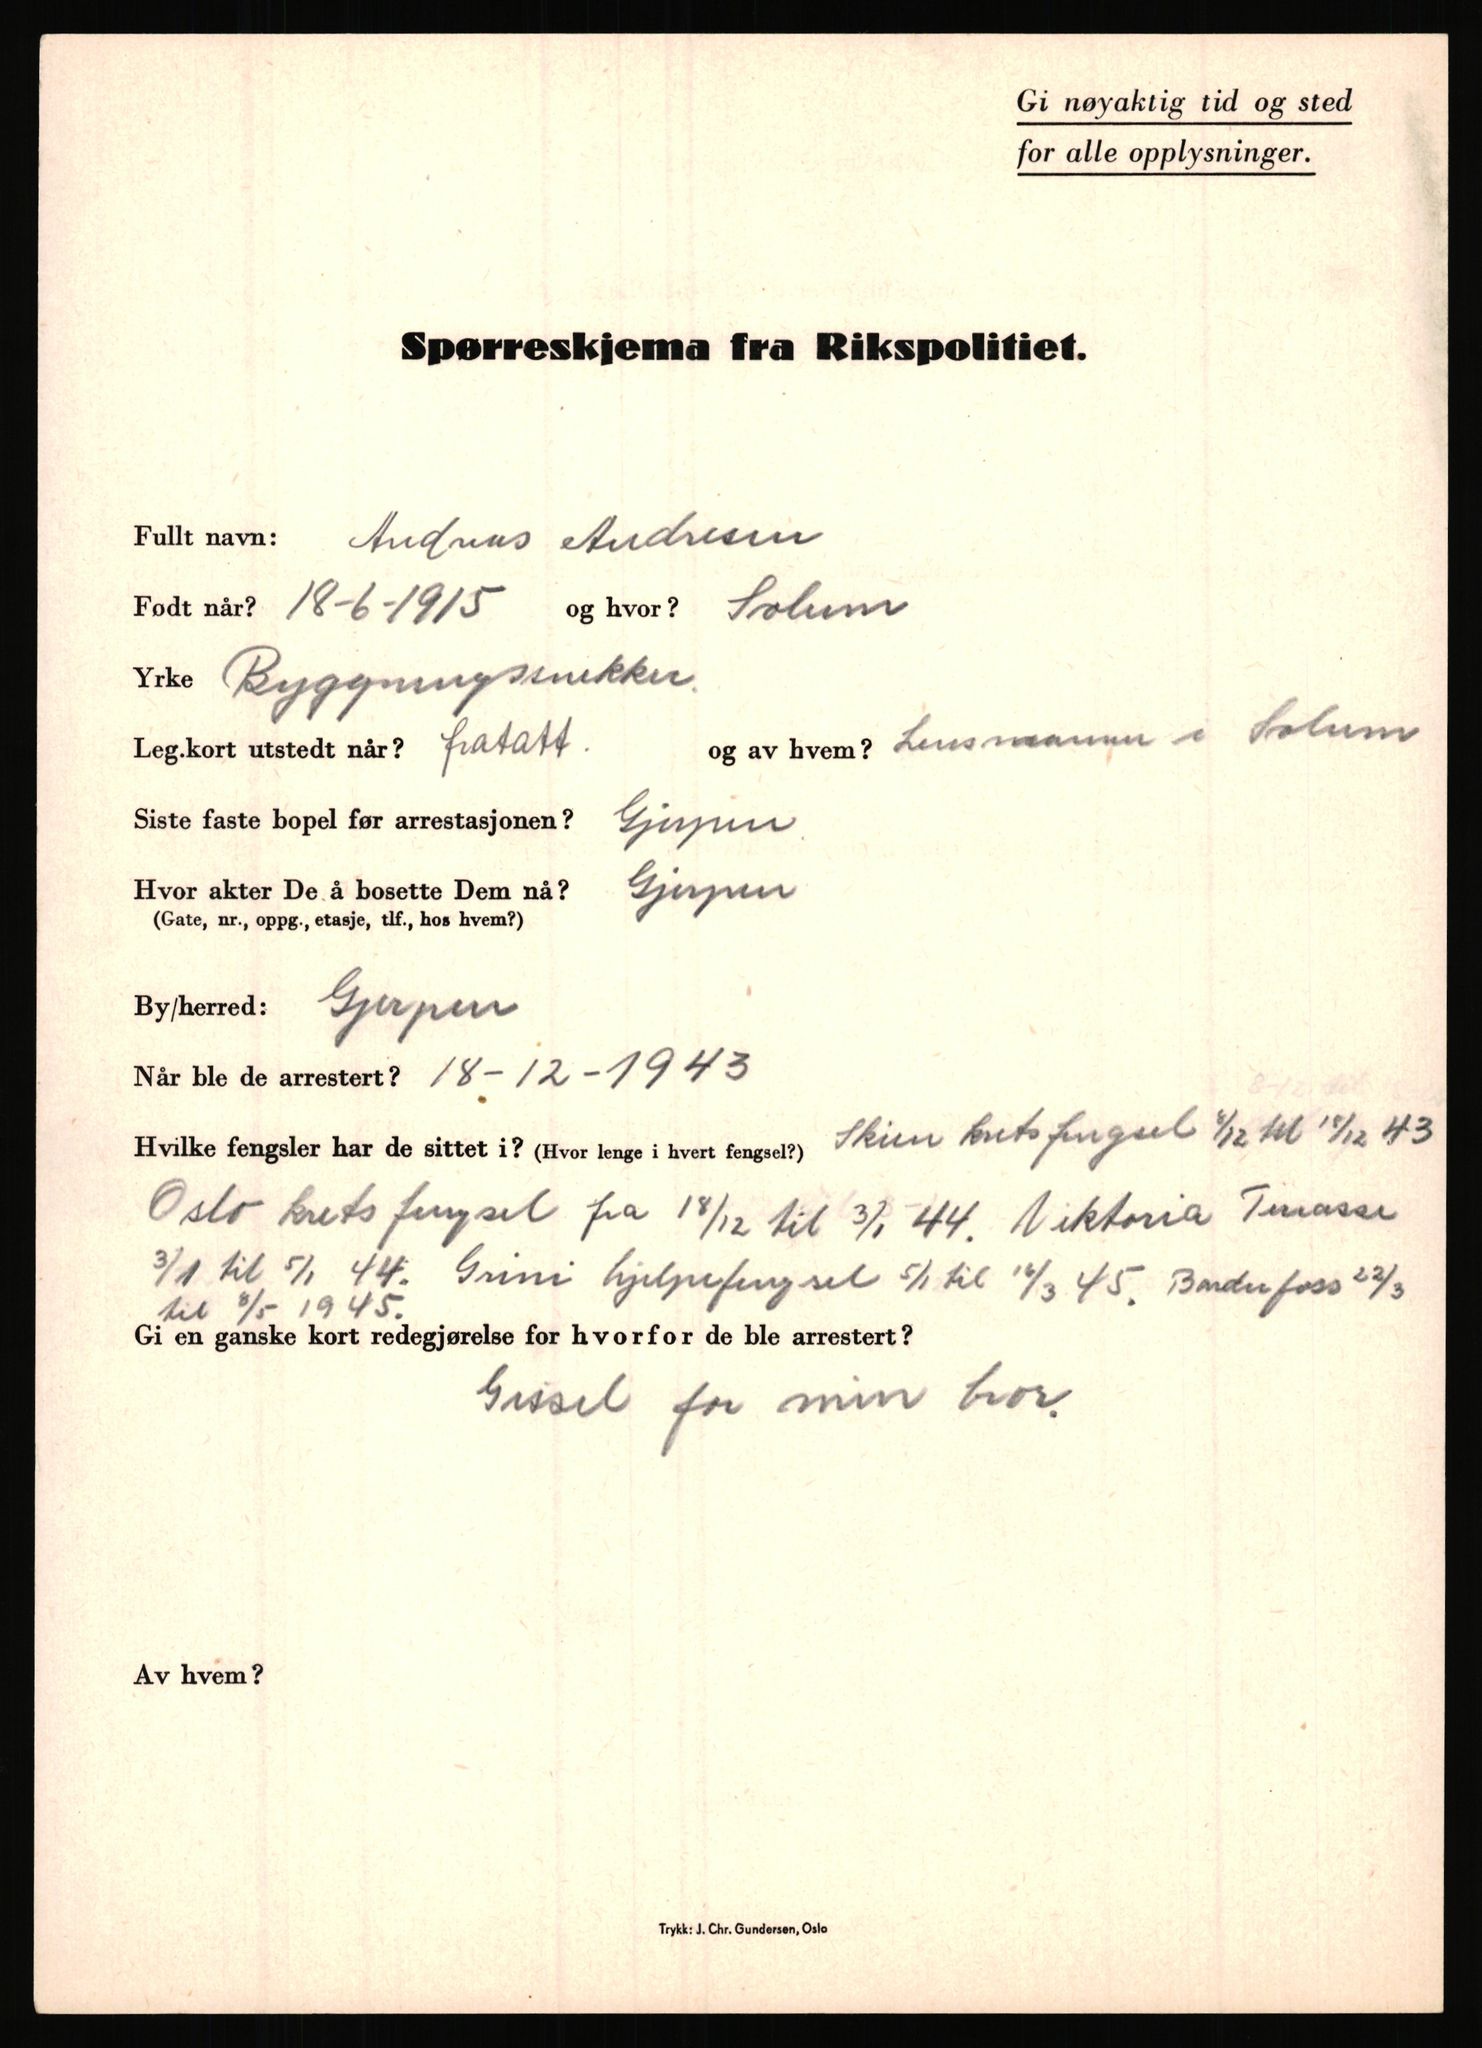 Gi nøyaktig tid og sted
for alle opplysninger.
Spørreskjema fra Rikspolitiet.
Fullt navn: Andreas Andresen
Født når? 18-6-1915 og hvor? Solum
Yrke Byggningssnekker.
Leg.kort utstedt når? fratatt. og av hvem? Lensmannen i Solum
Siste faste bopel før arrestasjonen? Gjerpen
Hvor akter De å bosette Dem nå? Gjerpen
(Gate, nr., oppg., etasje, tlf., hos hvem?)
By/herred: Gjerpen
Når ble de arrestert? 18-12-1943
Hvilke fengsler har de sittet i? (Hvor lenge i hvert fengsel?) Skien kretsfengsel 8/12 til 18/12 43
Oslo kretsfengsel fra 18/12 til 3/1 44. Viktoria Terrasse
3/1 til 5/1 44. Grini hjelpefengsel 5/1 til 16/3 45. Bardufoss 22/3
til 8/5 1945.
Gi en ganske kort redegjørelse for hvorfor de ble arrestert?
Gissel for min bror.
Av hvem?
Trykk: J. Chr. Gundersen, Oslo